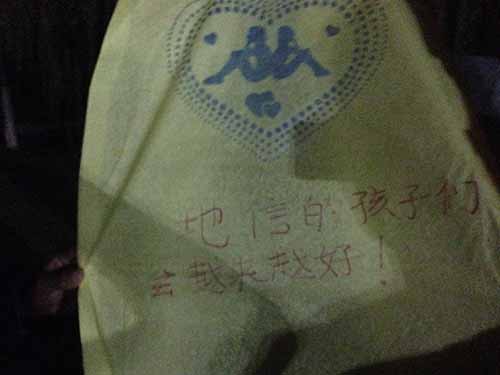 地信的孩子们
会越来越好！